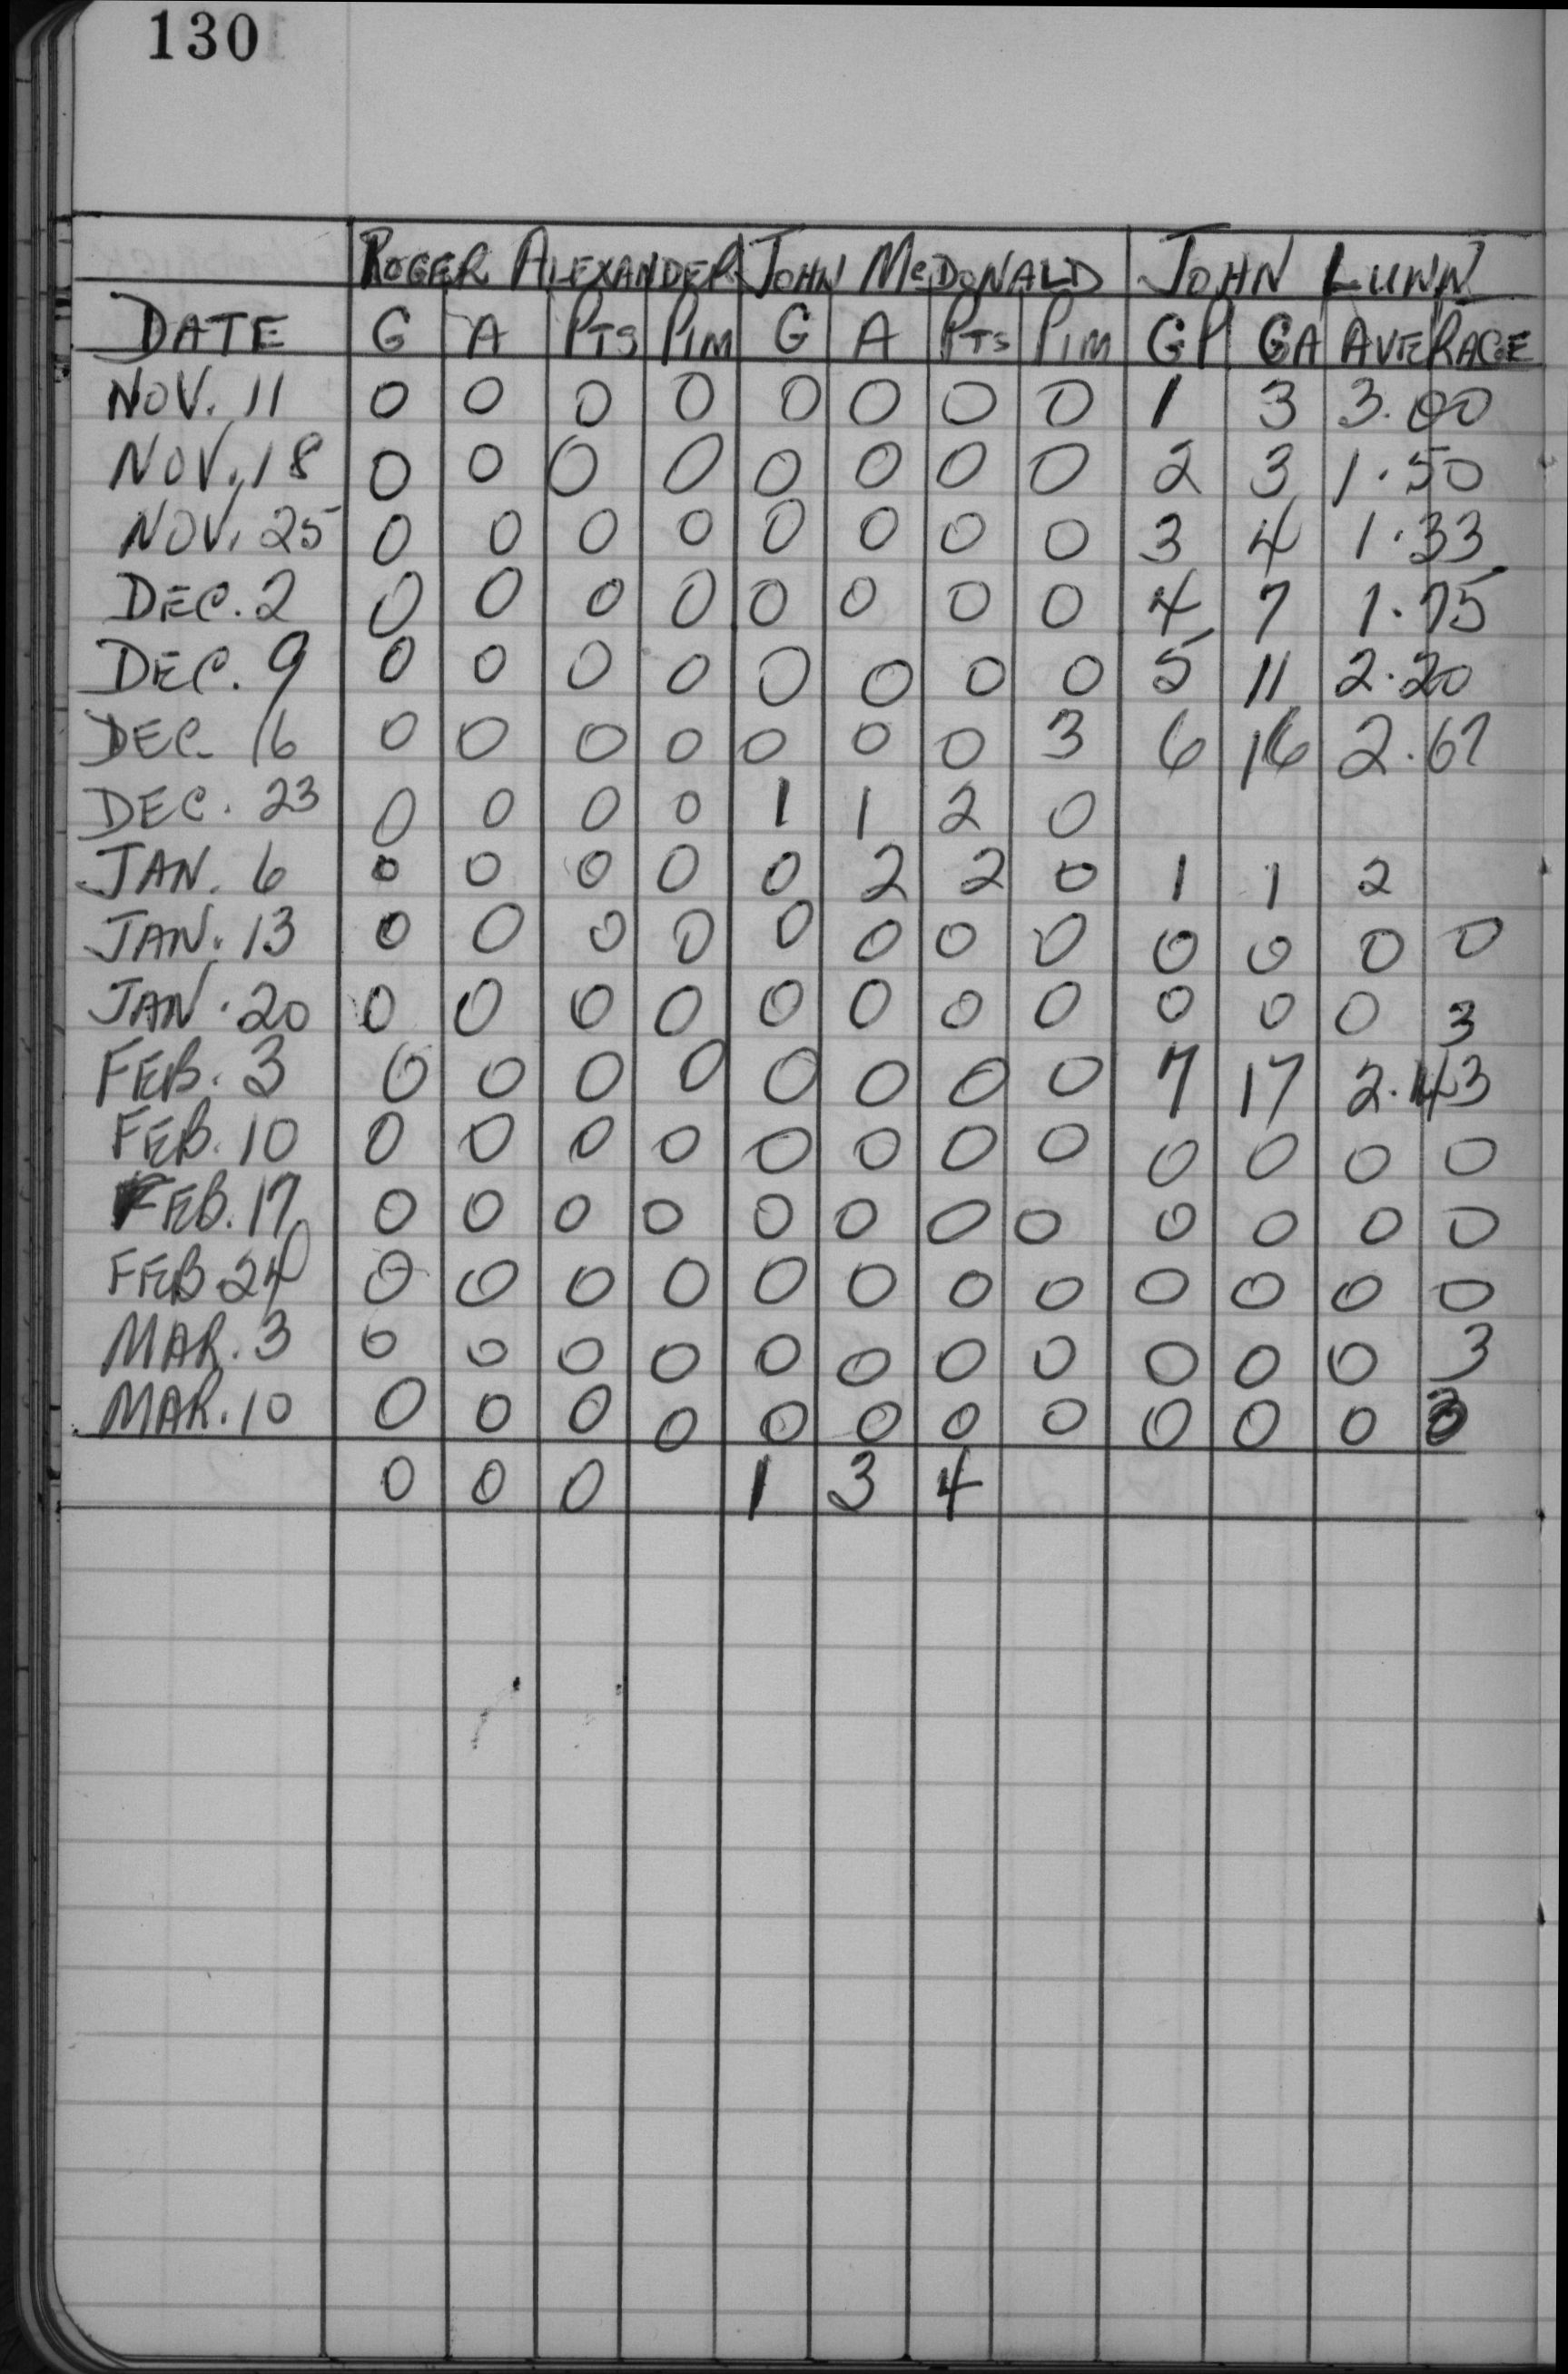 130
ROGER ALEXANDER JOHN McDONALD JOHN LUNN
DATE G A PTS PIM G A PTS PIM GP GA AVERAGE
NOV. 11 0 0 0 0 0 0 0 0 1 3 3.00
NOV. 18 0 0 0 0 0 0 0 0 2 3 1.50
NOV. 25 0 0 0 0 0 0 0 0 3 4 1.33
DEC. 2 0 0 0 0 0 0 0 0 4 7 1.75
DEC. 9 0 0 0 0 0 0 0 0 5 11 2.20
DEC. 16 0 0 0 0 0 0 0 3 6 16 2.67
DEC. 23 0 0 0 0 1 1 2 0
JAN. 6 0 0 0 0 0 2 2 0 1 1 2
JAN. 13 0 0 0 0 0 0 0 0 0 0 0 0
JAN. 20 0 0 0 0 0 0 0 0 0 0 0 3
FEB. 3 0 0 0 0 0 0 0 0 7 17 2.43
FEB. 10 0 0 0 0 0 0 0 0 0 0 0 0
FEB. 17 0 0 0 0 0 0 0 0 0 0 0 0
FEB 24 0 0 0 0 0 0 0 0 0 0 0 0
MAR. 3 0 0 0 0 0 0 0 0 0 0 0 3
MAR. 10 0 0 0 0 0 0 0 0 0 0 0
0 0 0 1 3 4